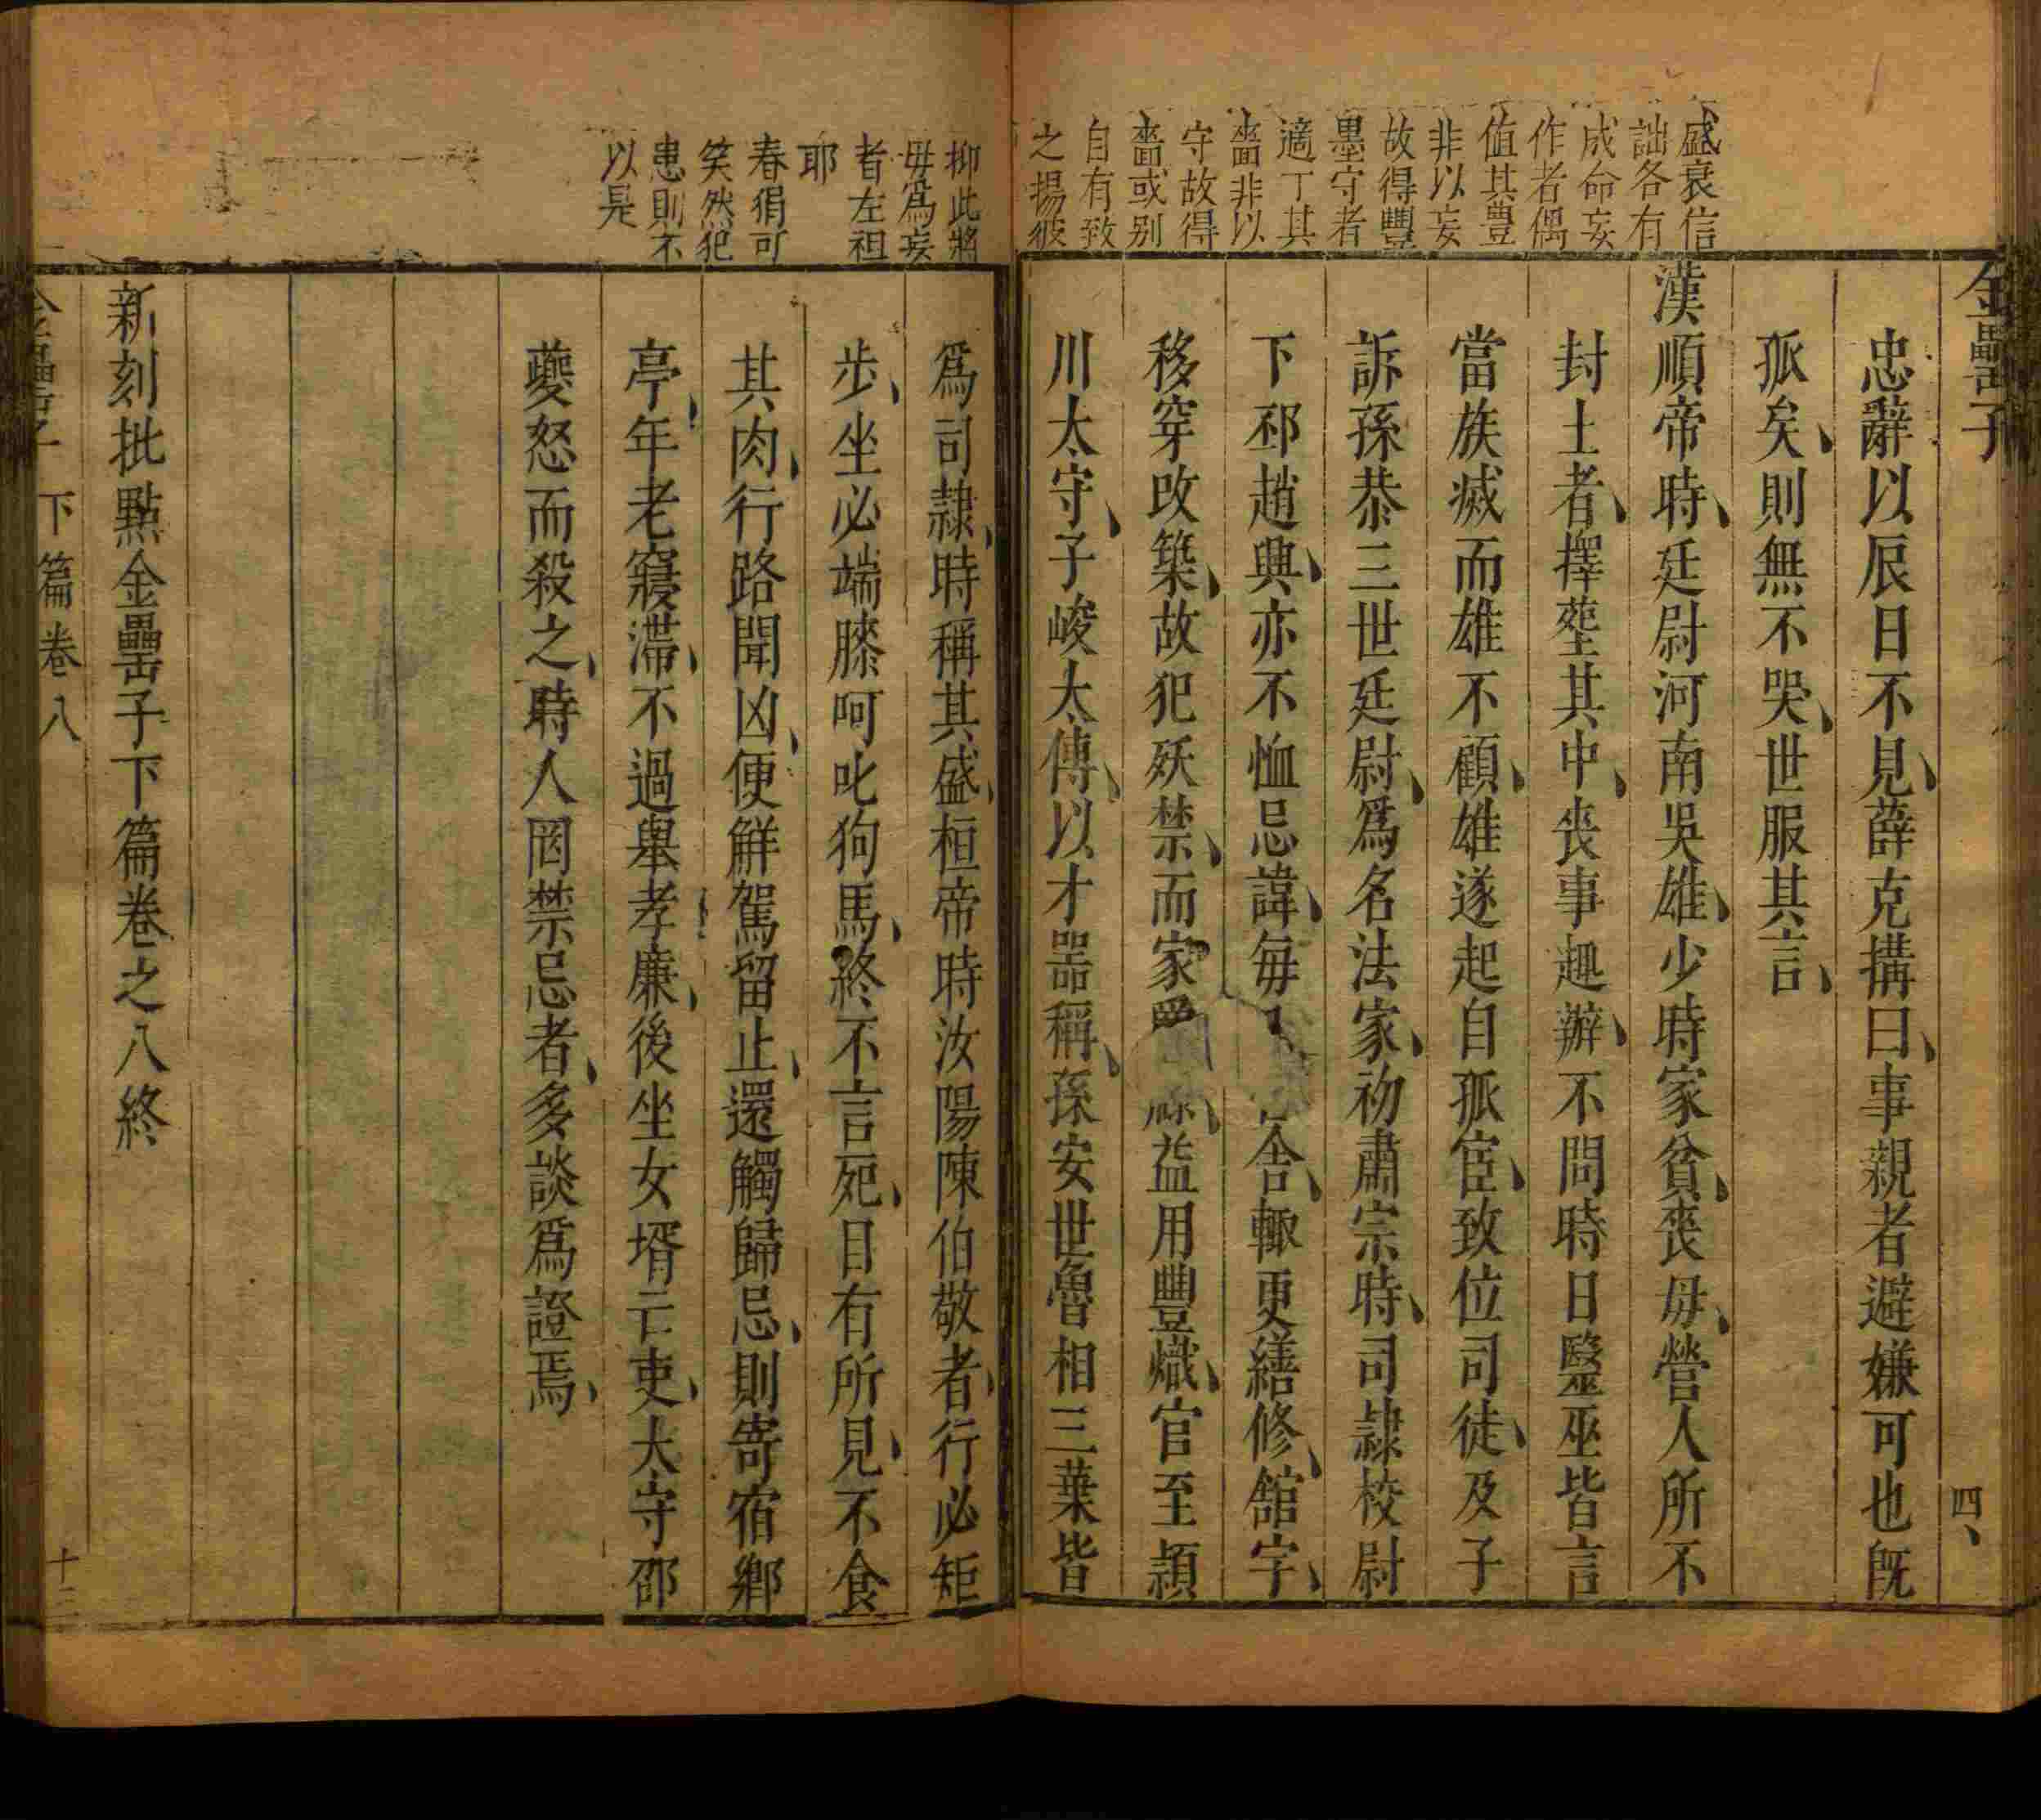 金罍子
四
盛衰信
詘各有
成命妄
作者偶
值其豊
非以妄
故得豐
墨守者
適丁其
嗇非以
守故得
嗇或别
自有致
之揚彼
忠辭以辰日不見薛克搆曰事親者避嫌可也旣
孤矣則無不哭世服其言
漢順帝時廷尉河南吳雄少時家貧喪毋營人所不
封土者擇塟其中喪事趣辦不問時日毉巫皆言
當族滅而雄不顧雄遂起自孤宦致位司徒及子
訴孫恭三世廷尉爲名法家初肅宗時司隷校尉
下邳趙興亦不恤忌諱毎舍輙更繕修舘宇
移穿改築故犯妖禁而家益用豐熾官至頴
川太守子峻太傅以才器稱孫安世魯相三葉皆
抑此將
毋爲妄
者左袒
耶
春狷可
笑然犯
患則不
以是
爲司隷時稱其盛桓帝時汝陽陳伯敬者行必矩
步坐必端膝呵叱狗馬終不言死目有所見不食
其肉行路聞凶便解駕留止還觸歸忌則寄宿鄉
亭年老寢滯不過舉孝廉後坐女壻亡吏太守邵
夔怒而殺之時人罔禁忌者多談爲證焉
新刻批點金罍子下篇卷之八終
金罍子 下篇卷八
十三